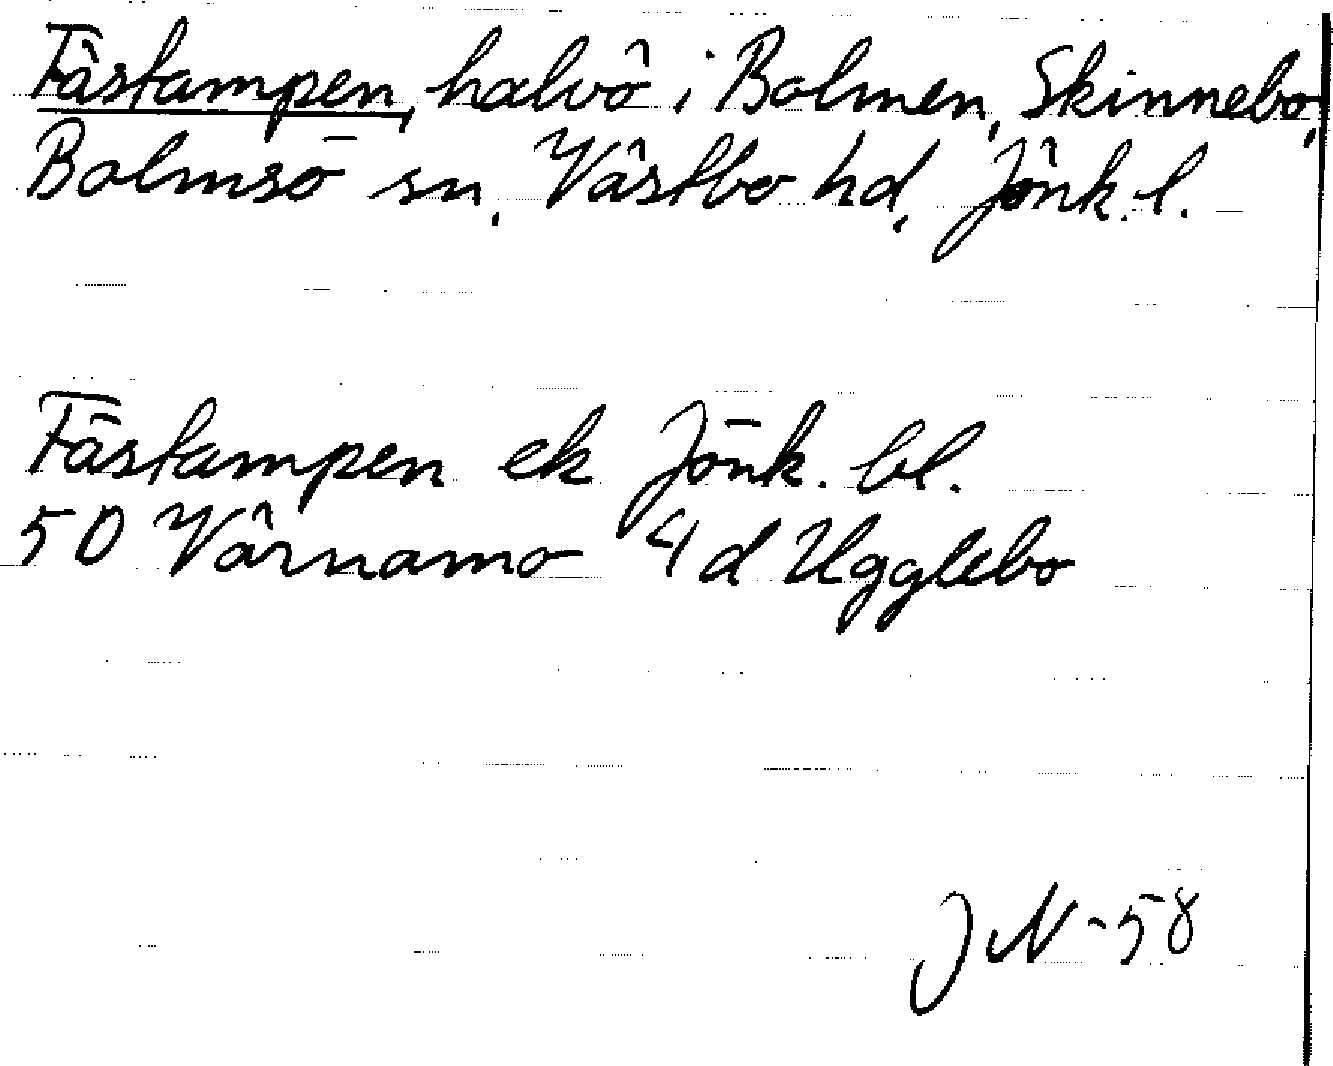 Fästampen, halvö i Bolmen, Skinnebo,
Bolmsö sn, Västbo hd, Jönk. l.
Fästampen ek Jönk. bl.
50 Värnamo 4 d Ugglebo
JN-58